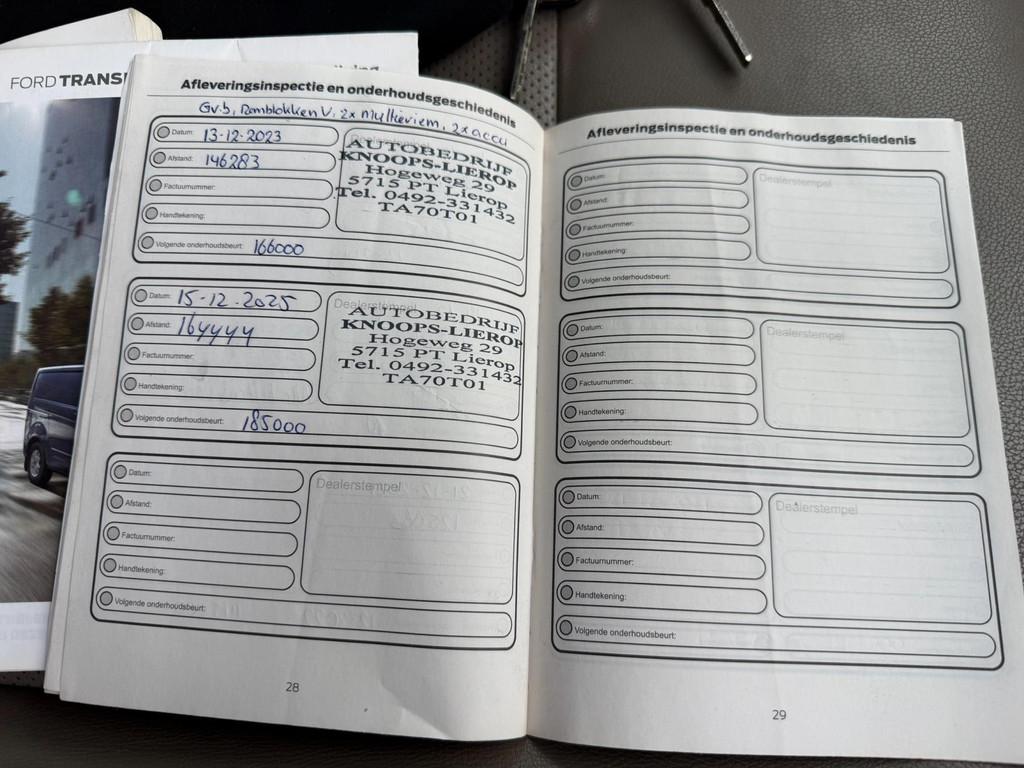 FORD TRANSI
Afleveringsinspectie en onderhoudsgeschiedenis
Gr.b, Remblokken V, 2x multiriem, 2x accu
Datum: 13-12-2023
Afstand: 146283
Factuurnummer:
Handtekening:
Volgende onderhoudsbeurt: 166000
AUTOBEDRIJF
KNOOPS-LIEROP
Hogeweg 29
5715 PT Lierop
Tel. 0492-331432
TA70T01
Datum: 15-12-2025
Afstand: 164444
Factuurnummer:
Handtekening:
Volgende onderhoudsbeurt: 185000
Dealerstempel
AUTOBEDRIJF
KNOOPS-LIEROP
Hogeweg 29
5715 PT Lierop
Tel. 0492-331432
TA70T01
Datum:
Afstand:
Factuurnummer:
Handtekening:
Volgende onderhoudsbeurt:
Dealerstempel
28
Afleveringsinspectie en onderhoudsgeschiedenis
Datum:
Afstand:
Factuurnummer:
Handtekening:
Volgende onderhoudsbeurt:
Dealerstempel
Datum:
Afstand:
Factuurnummer:
Handtekening:
Volgende onderhoudsbeurt:
Dealerstempel
Datum:
Afstand:
Factuurnummer:
Handtekening:
Volgende onderhoudsbeurt:
Dealerstempel
29